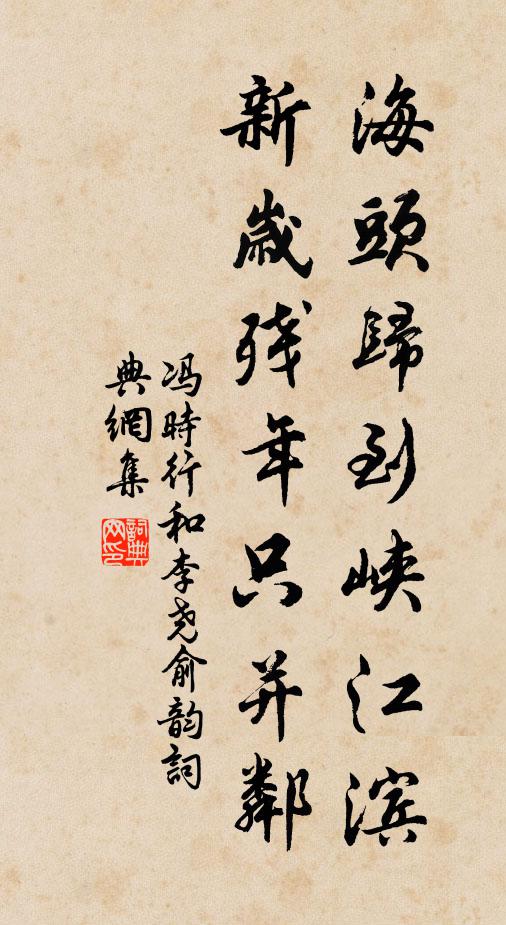 海頭歸到峽江滨
新歲残年只并鄰
冯時行和李尧俞韵詞
典網集
詞典网印